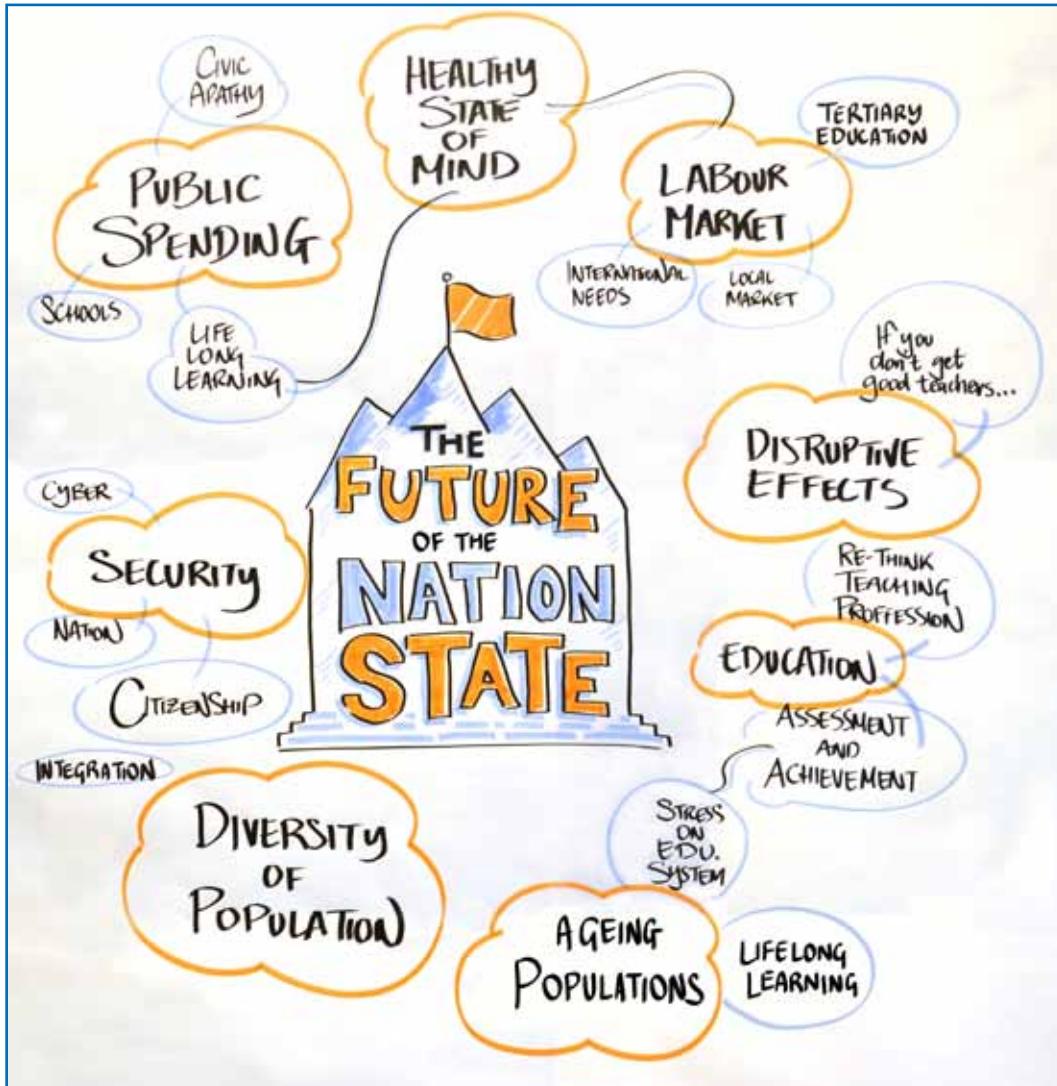 CIVIC
APATHY
PUBLIC
SPENDING
SCHOOLS
LIFE
LONG
LEARNING
HEALTHY
STATE
OF
MIND
LABOUR
MARKET
TERTIARY
EDUCATION
INTERNATIONAL
NEEDS
LOCAL
MARKET
If you
don't get
good teachers...
DISRUPTIVE
EFFECTS
THE
FUTURE
OF THE
NATION
STATE
CYBER
SECURITY
NATION
CITIZENSHIP
RE-THINK
TEACHING
PROFFESSION
EDUCATION
ASSESSMENT
AND
ACHIEVEMENT
INTEGRATION
DIVERSITY
OF
POPULATION
STRESS
ON
EDU.
SYSTEM
AGEING
POPULATIONS
LIFELONG
LEARNING